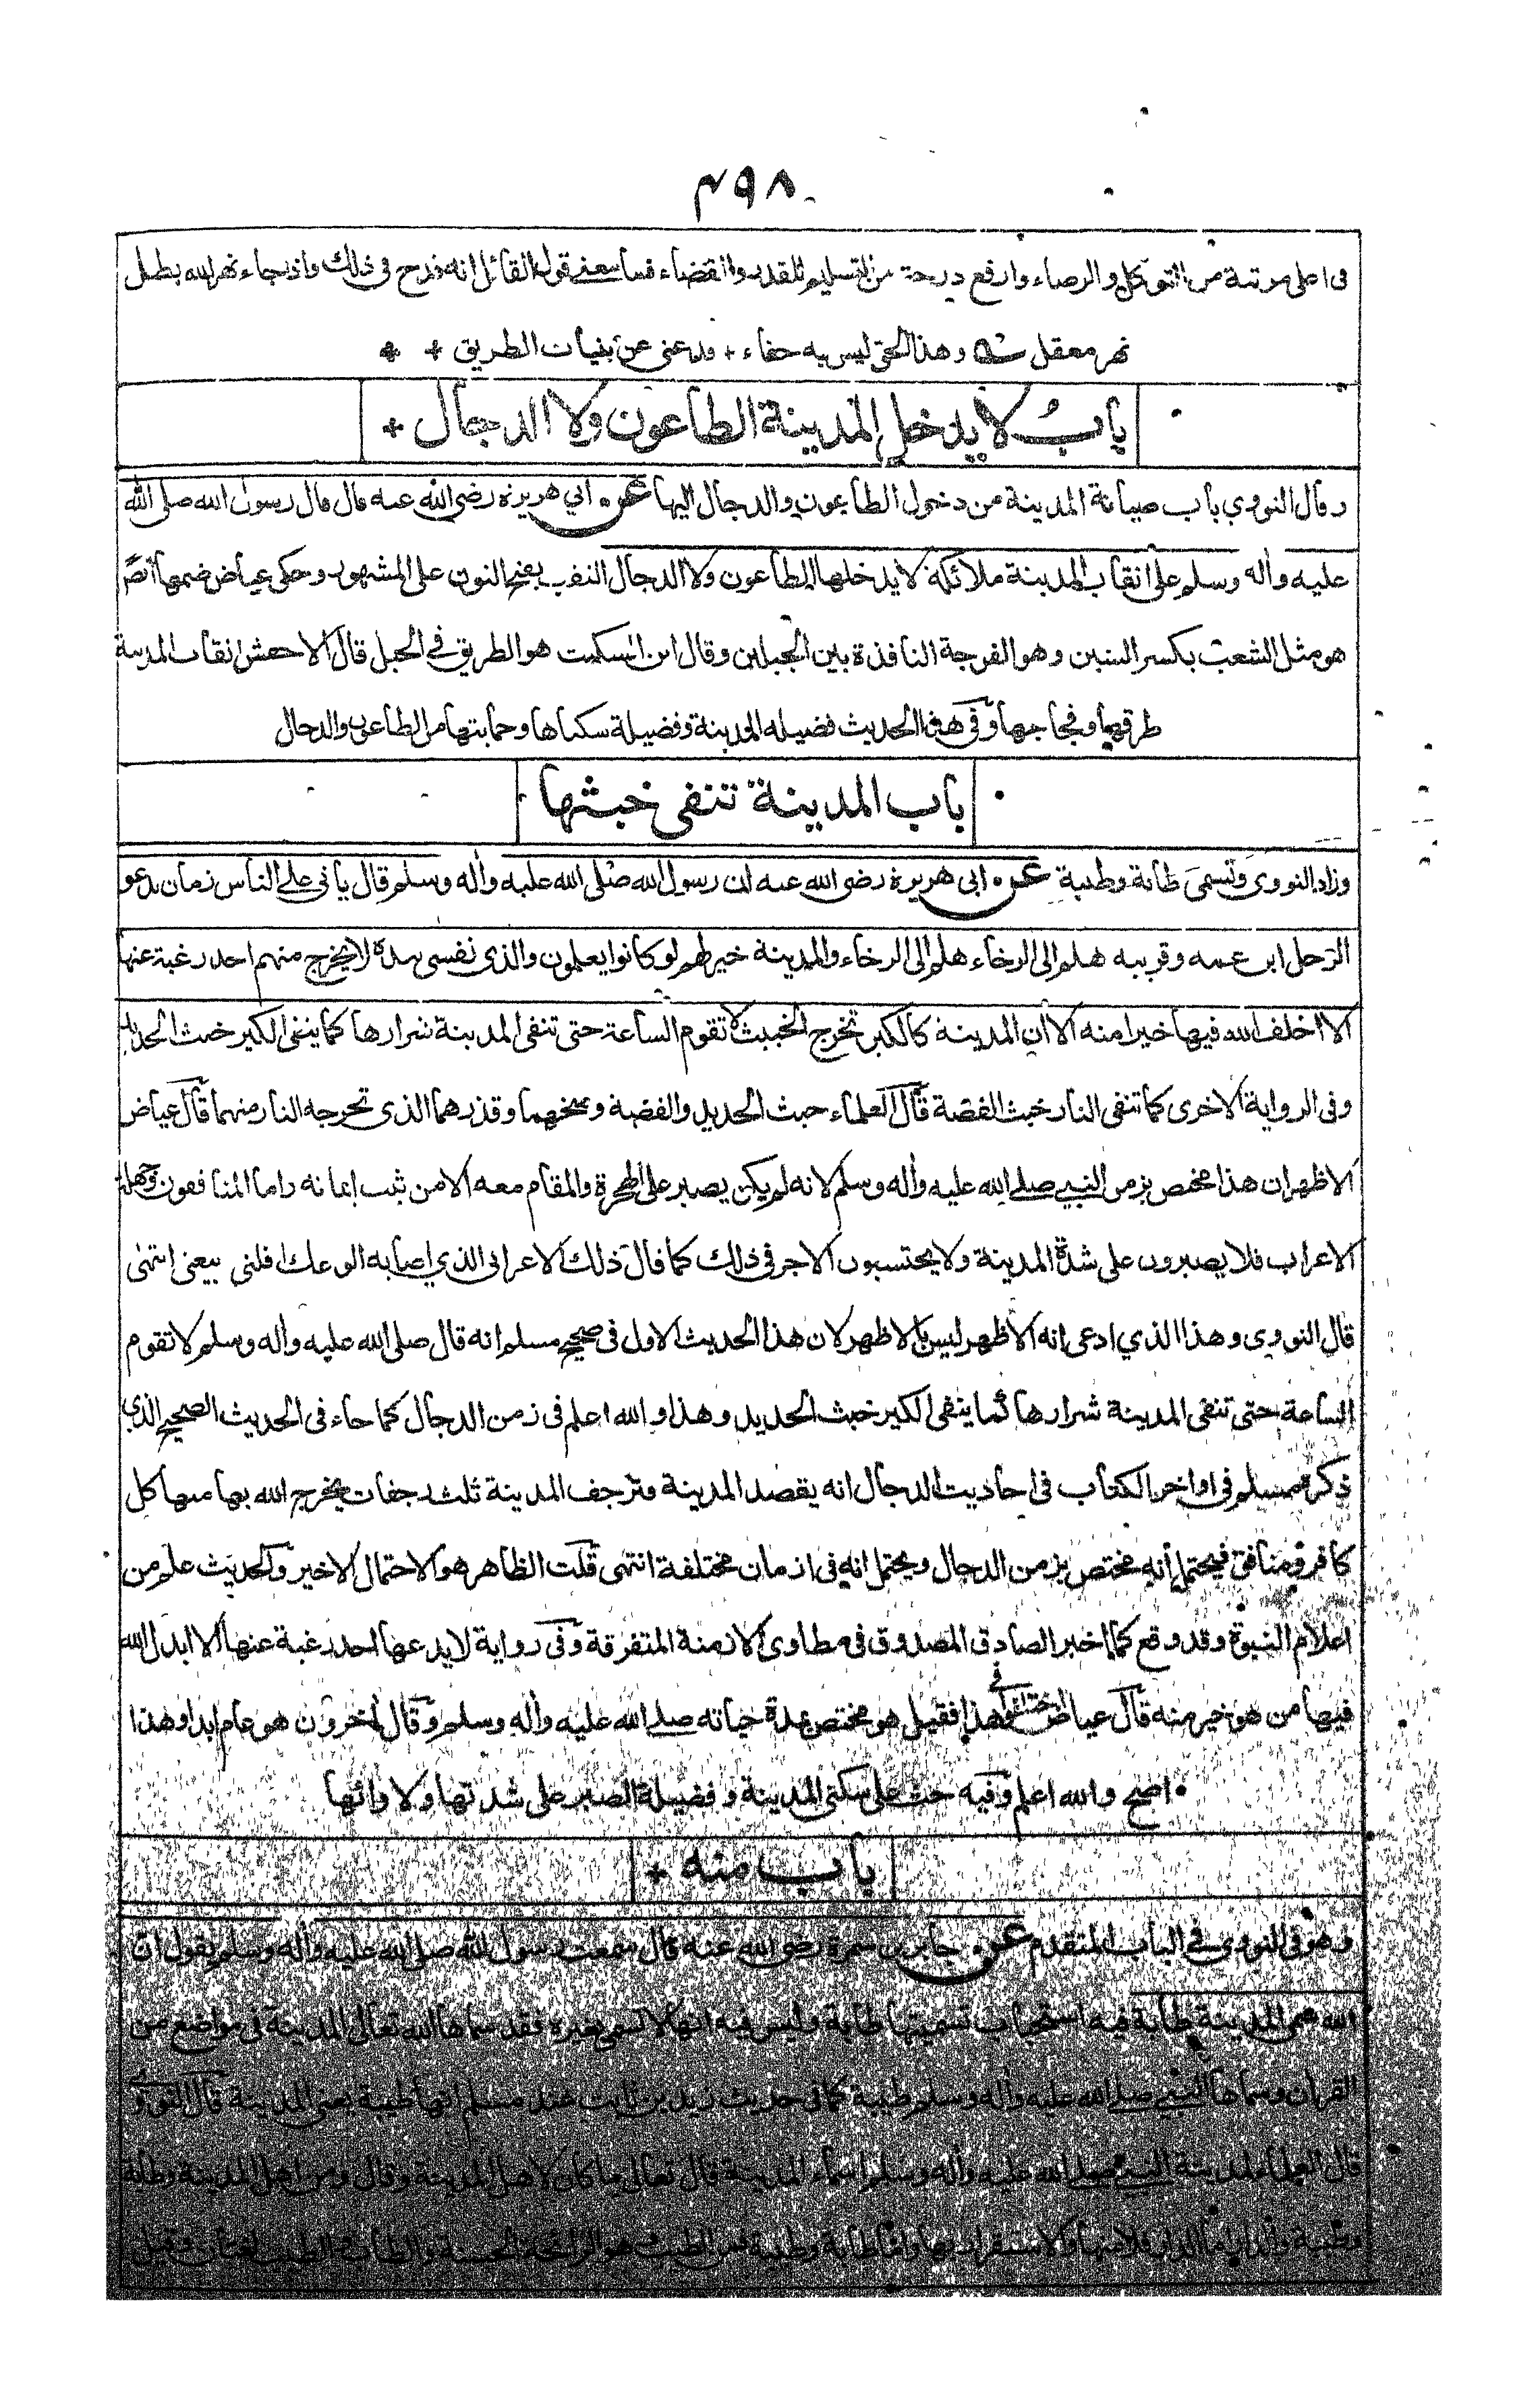 ۴۹۸
فى اعلى مرتبة من التوكل والرضاء وارفع درجة من التسليم للقدر والقضاء فما معنى قول القائل انه قدح فى ذلك واذا جاء نهر الله بطل
نهر معقل وهذا الحق ليس به خفاء + ودعنى عن بنيات الطريق + +
باب لا يدخل المدينة الطاعون ولا الدجال +
وقال النووي باب صيانة المدينة من دخول الطاعون والدجال اليها عن ابي هريرة رضى الله عنه قال قال رسول الله صلى الله
عليه واله وسلم على انقاب المدينة ملائكة لا يدخلها الطاعون ولا الدجال النقب بفتح النون على المشهور وحكى عياض ضمها ايضا
هو مثل الشعب بكسر الشين وهو الفرجة النافذة بين الجبلين وقال ابن السكيت هو الطريق فى الجبل قال الاخفش انقاب المدينة
طرقها وفجاجها وفى هذا الحديث فضيلة المدينة وفضيلة سكناها وحمايتها من الطاعون والدجال
باب المدينة تنفى خبثها
وزاد النووى وتسمى طابة وطيبة عن ابى هريرة رضى الله عنه ان رسول الله صلى الله عليه واله وسلم قال يأتى على الناس زمان يدعو
الرجل ابن عمه وقريبه هلم الى الرخاء هلم الى الرخاء والمدينة خير لهم لو كانوا يعلمون والذى نفسى بيده لا يخرج منهم احد رغبة عنها
الا اخلف الله فيها خيرا منه الا ان المدينة كالكير تخرج الخبيث لا تقوم الساعة حتى تنفى المدينة شرارها كما ينفى الكير خبث الحديد
وفى الرواية الاخرى كما تنفى النار خبث الفضة قال العلماء خبث الحديد والفضة وسخهما وقذرهما الذى تخرجه النار منهما قال عياض
الاظهر ان هذا مختص بزمن النبي صلى الله عليه واله وسلم لانه لم يكن يصبر على الهجرة والمقام معه الا من ثبت ايمانه واما المنافقون وجهلة
الاعراب فلا يصبرون على شدة المدينة ولا يحتسبون الاجر فى ذلك كما قال ذلك الاعرابى الذي اصابه الوعك اقلنى بيعتى انتهى
قال النووى وهذا الذي ادعى انه الاظهر ليس بالاظهر لان هذا الحديث الاول فى صحيح مسلم انه قال صلى الله عليه واله وسلم لا تقوم
الساعة حتى تنفى المدينة شرارها كما ينفى الكير خبث الحديد وهذا والله اعلم فى زمن الدجال كما جاء فى الحديث الصحيح الذي
ذكره مسلم فى اواخر الكتاب فى احاديث الدجال انه يقصد المدينة فترجف المدينة ثلث رجفات يخرج الله بها منها كل
كافر ومنافق فيحتمل أنه مختص بزمن الدجال ويحتمل انه فى ازمان مختلفة انتهى قلت الظاهر هو الاحتمال الاخير والحديث علم من
اعلام النبوة وقد وقع كما اخبر الصادق المصدوق فى مطاوى الازمنة المتفرقة وفى رواية لا يدعها احد رغبة عنها الا ابدل الله
فيها من هو خير منه قال عياض اختلفوا فى هذا فقيل هو مختص بمدة حياته صلى الله عليه واله وسلم وقال آخرون هو عام ابدا وهذا
اصح والله اعلم وفيه حث على سكنى المدينة وفضيلة الصبر على شدتها ولاوائها
باب منه +
وهو فى النووى فى الباب المتقدم عن جابر بن سمرة رضى الله عنه قال سمعت رسول الله صلى الله عليه واله وسلم يقول ان
الله سمى المدينة طابة فيه استحباب تسميتها طابة وليس فيه انها لا تسمى بغيره فقد سماها الله تعالى المدينة فى مواضع من
القرآن وسماها النبي صلى الله عليه واله وسلم طيبة كما فى حديث زيد بن ثابت عند مسلم انها طيبة يعنى المدينة قال النووى
قال العلماء لمدينة النبي صلى الله عليه واله وسلم اسماء المدينة قال تعالى ما كان لاهل المدينة وقال ومن اهل المدينة وطابة
وطيبة والدار فاما الدار فلامنها والاستقرار بها واما طابة وطيبة فمن الطيب هو الرائحة الحسنة والطاب والطيب لغتان وقيل